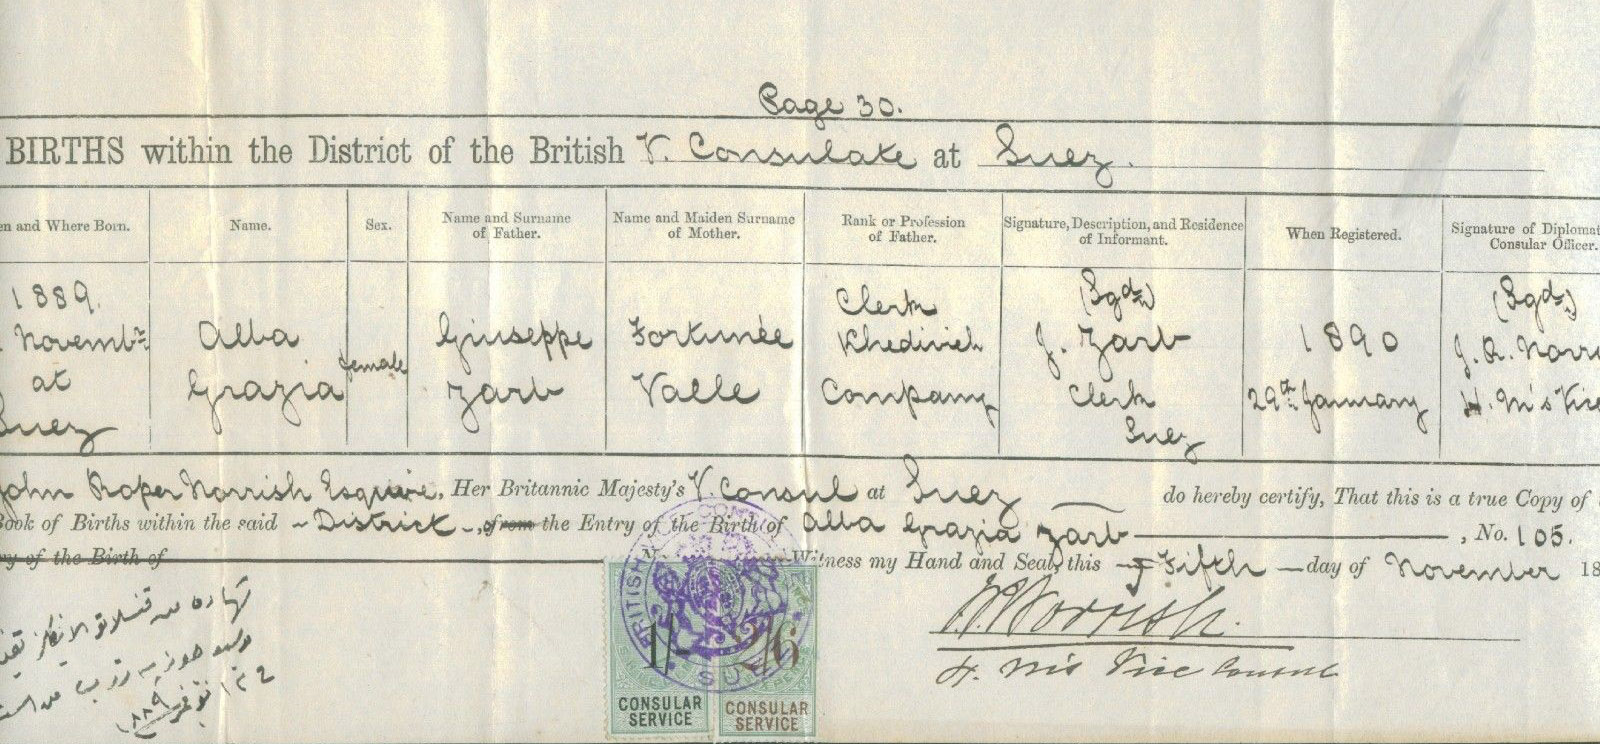 Page 30.
BIRTHS within the District of the British V. Consulate at Suez.
en and Where Born.
Name.
Sex.
Name and Surname
of Father.
Name and Maiden Surname
of Mother.
Rank or Profession
of Father.
Signature, Description, and Residence
of Informant.
When Registered.
Signature of Diplomat
Consular Officer.
1889.
Novembr
at
Suez
Alba
Grazia
female
Giuseppe
Zarb
Fortunée
Valle
Clerk
Khedivieh
Company
(Sgd)
J. Zarb
Clerk
Suez
1890
29th January
(Sgd)
J. R. Norri
H. M's Vice
John Roper Norrish Esquire, Her Britannic Majesty's V. Consul at Suez do hereby certify, That this is a true Copy of
Book of Births within the said District, from the Entry of the Birth of Alba Grazia Zarb, No. 105.
y of the Birth of Witness my Hand and Seal, this Fifth day of November 18
J. R. Norrish.
H. M's Vice Consul
BRITISH
SUEZ
1/-
2/6
CONSULAR
SERVICE
CONSULAR
SERVICE
نوفمبر
١٨٨٩